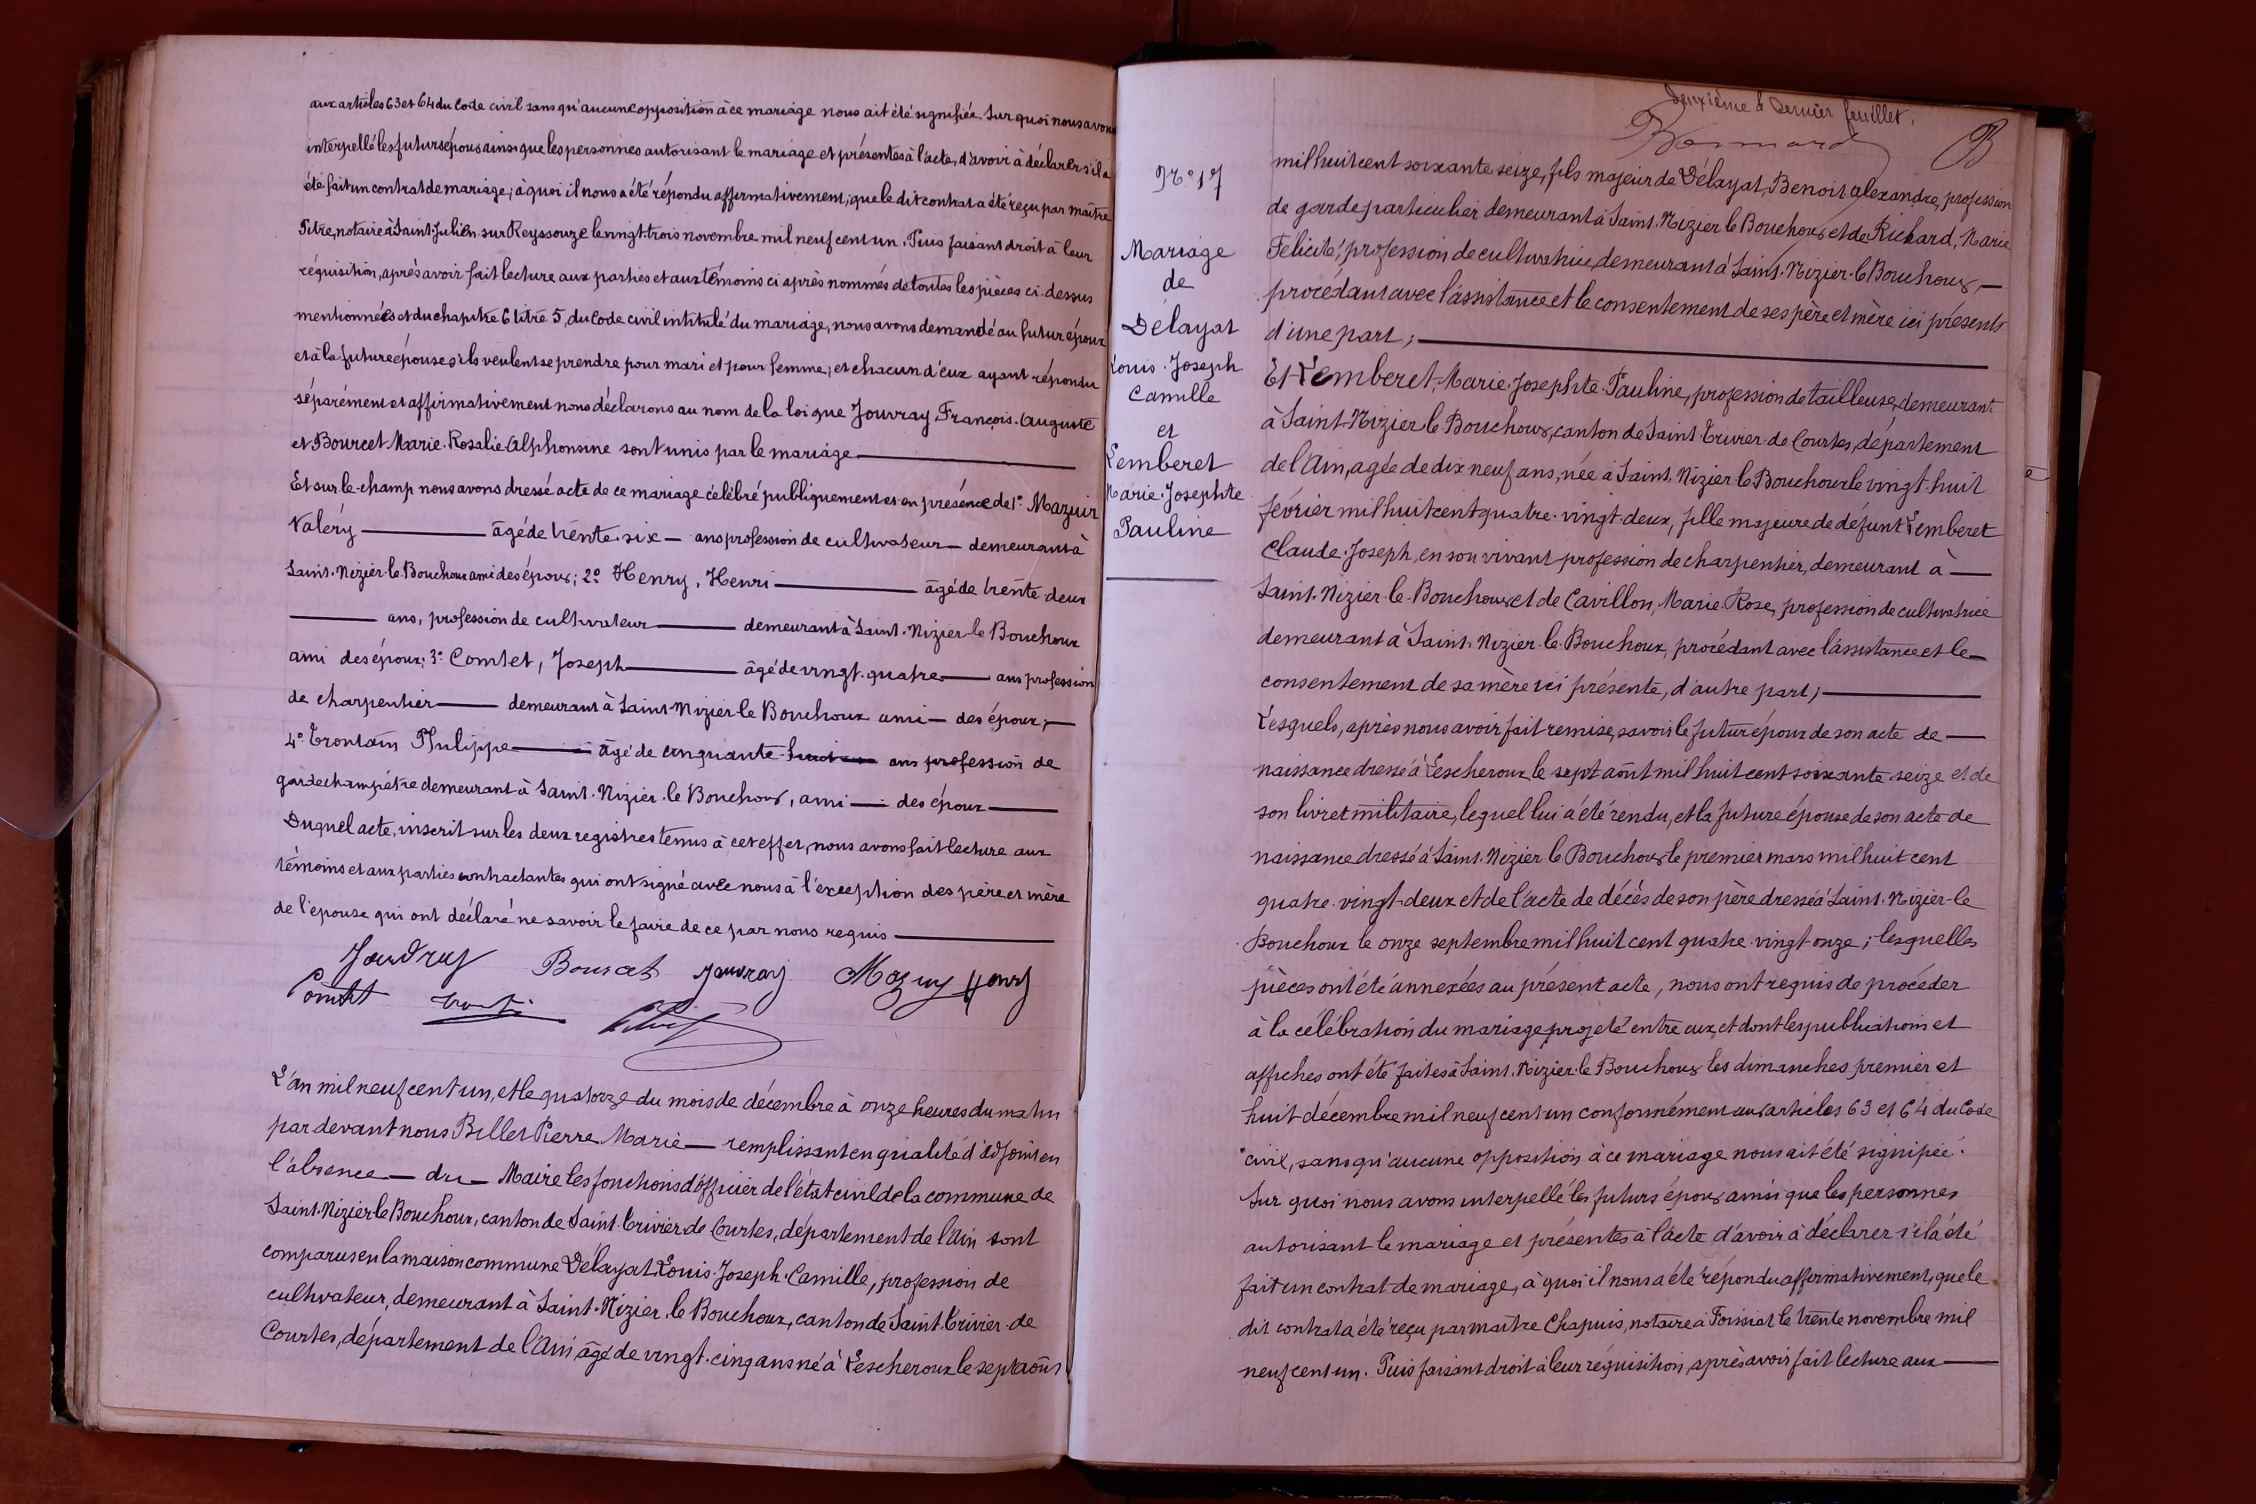 aux articles 63 et 64 du Code civil sans qu'aucune opposition à ce mariage nous ait été signifiée. Sur quoi nous avons
interpellé les futurs époux ainsi que les personnes autorisant le mariage et présentes à l'acte, d'avoir à déclarer s'il a
été fait un contrat de mariage; à quoi il nous a été répondu affirmativement; que le dit contrat a été reçu par maître
Pitre, notaire à Saint Julien sur Reyssouze le vingt-trois novembre mil neuf cent un. Puis faisant droit à leur
réquisition, après avoir fait lecture aux parties et aux témoins ci après nommés de toutes les pièces ci-dessus
mentionnées et du chapitre 6 titre 5, du Code civil intitulé du mariage, nous avons demandé au futur époux
et à la future épouse s'ils veulent se prendre pour mari et pour femme; et chacun d'eux ayant répondu
séparément et affirmativement nous déclarons au nom de la loi que Jouvray François-Auguste
et Bourcet Marie-Rosalie-Alphonsine sont unis par le mariage
Et sur-le-champ nous avons dressé acte de ce mariage célébré publiquement et en présence de 1° Mazuir
Valéry âgé de trente-six ans profession de cultivateur demeurant à
Saint-Nizier-le-Bouchoux ami des époux; 2° Henry, Henri âgé de trente deux
ans, profession de cultivateur demeurant à Saint-Nizier-le Bouchoux
ami des époux; 3° Comtet, Joseph âgé de vingt-quatre ans profession
de charpentier demeurant à Saint-Nizier-le Bouchoux ami des époux;
4° Trontain Philippe âgé de cinquante huit ans profession de
garde champêtre demeurant à Saint-Nizier-le Bouchoux, ami des époux
Duquel acte, inscrit sur les deux registres tenus à cet effet, nous avons fait lecture aux
témoins et aux parties contractantes qui ont signé avec nous à l'exception des père et mère
de l'épouse qui ont déclaré ne savoir le faire de ce par nous requis
Jouvray Bourcet Jouvray Mazuy Henry
Comtet
L'an mil neuf cent un, et le quatorze du mois de décembre à onze heures du matin
par devant nous Billet Pierre Marie remplissant en qualité d'adjoint en
l'absence du Maire les fonctions d'officier de l'état civil de la commune de
Saint-Nizier le Bouchoux, canton de Saint-Trivier-de Courtes, département de l'Ain sont
comparus en la maison commune Délayat Louis-Joseph-Camille, profession de
cultivateur, demeurant à Saint-Nizier-le Bouchoux, canton de Saint-Trivier-de
Courtes, département de l'Ain âgé de vingt-cinq ans né à Lescheroux le sept août
Deuxième & dernier feuillet.
N° 17
Mariage
de
Délayat
Louis-Joseph
Camille
et
Lemberet
Marie-Josephte
Pauline
mil huit cent soixante seize, fils majeur de Délayat, Benoit Alexandre, profession
de garde particulier demeurant à Saint-Nizier le Bouchoux et de Richard, Marie
Félicité, profession de cultivatrice, demeurant à Saint-Nizier-le Bouchoux,
procédant avec l'assistance et le consentement de ses père et mère ici présents
d'une part;
Et Lemberet, Marie-Josephte-Pauline, profession de tailleuse, demeurant
à Saint-Nizier le Bouchoux, canton de Saint-Trivier-de Courtes, département
de l'Ain, agée de dix neuf ans, née à Saint-Nizier le Bouchoux le vingt-huit
février mil huit cent quatre-vingt-deux, fille majeure de défunt Lemberet
Claude-Joseph, en son vivant profession de charpentier, demeurant à
Saint-Nizier-le-Bouchoux et de Cavillon, Marie-Rose, profession de cultivatrice
demeurant à Saint-Nizier-le-Bouchoux, procédant avec l'assistance et le
consentement de sa mère ici présente, d'autre part;
Lesquels, après nous avoir fait remise, savoir le futur époux de son acte de
naissance dressé à Lescheroux, le sept août mil huit cent soixante-seize et de
son livret militaire, lequel lui a été rendu, et la future épouse de son acte de
naissance dressé à Saint-Nizier le Bouchoux le premier mars mil huit cent
quatre-vingt-deux et de l'acte de décès de son père dressé à Saint-Nizier-le
Bouchoux le onze septembre mil huit cent quatre-vingt-onze; lesquelles
pièces ont été annexées au présent acte, nous ont requis de procéder
à la célébration du mariage projeté entre eux, et dont les publications et
affiches ont été faites à Saint-Nizier-le Bouchoux les dimanches premier et
huit décembre mil neuf cent un conformément aux articles 63 et 64 du Code
civil, sans qu'aucune opposition à ce mariage nous ait été signifiée.
Sur quoi nous avons interpellé les futurs époux ainsi que les personnes
autorisant le mariage et présentes à l'acte d'avoir à déclarer s'il a été
fait un contrat de mariage, à quoi il nous a été répondu affirmativement, que le
dit contrat a été reçu par maître Chapuis, notaire à Foissiat le trente novembre mil
neuf cent un. Puis faisant droit à leur réquisition, après avoir fait lecture aux